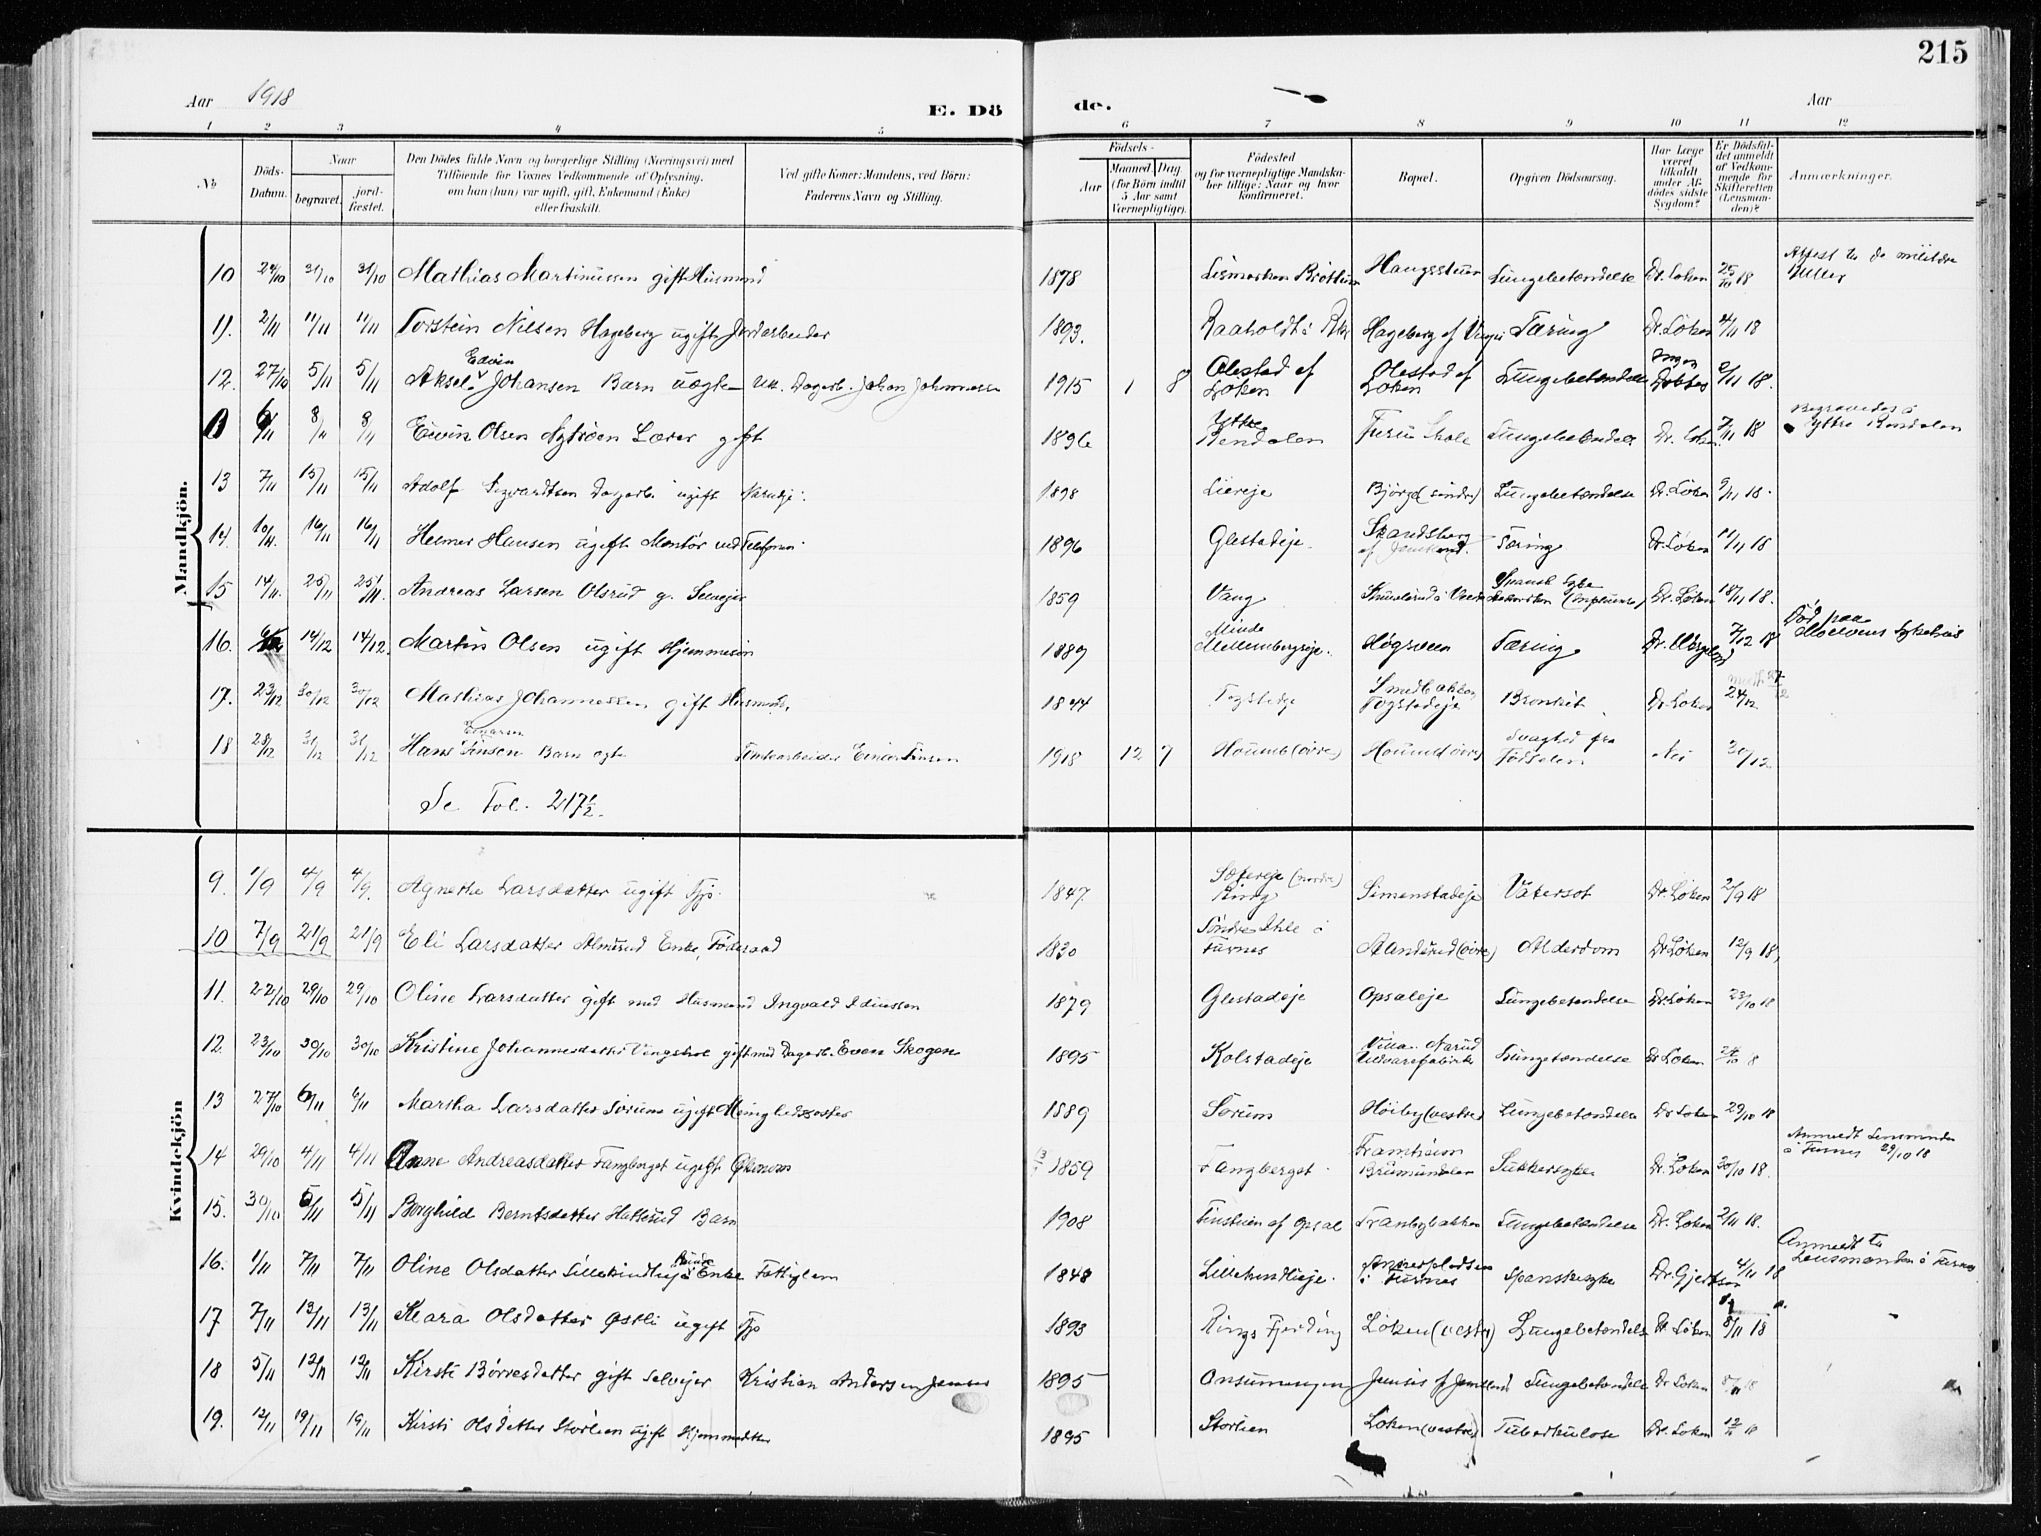 215
Aar 1918
E. Dö
de.
Aar
1 2 3 4 5 6 7 8 9 10 11 12
No
Döds-Datum.
Naar
begravet.
jord-fæstet.
Den Dödes fulde Navn og borgerlige Stilling (Næringsvei) med
Tilföiende for Voxnes Vedkommende af Oplysning,
om han (hun) var ugift, gift, Enkemand (Enke)
eller fraskilt.
Ved gifte Koner: Mandens, ved Börn:
Faderens Navn og Stilling.
Födsels-
Aar
Maaned Dag
(for Börn indtil
5 Aar samt
Værnepligtige).
Födested
og for værnepligtige Mandska-
ber tillige: Naar og hvor
konfirmeret.
Bopæl.
Opgiven Dödsaarsag.
Har Læge
været
tilkaldt
under Af-
dödes sidste
Sygdom?
Er Dödsfal-
det anmeldt
af Vedkom-
mende for
Skifteretten
(Lensman-
den)?
Anmærkninger.
Mandkjön.
10 24/10 31/10 31/10 Mathias Martinussen gift Husmand 1878 Lismarken Brøttum Haugsstuen Lungebetændelse Dr. Løken 25/10 18
11. 2/11 11/11 11/11 Torstein Nilsen Hageberg ugift Jordarbeider 1893. Raaholdt i Hageberg af Taring Dr. Løken 4/11 18
12. 27/10 5/11 5/11 Aksel Edvin Johansen Barn uægte Dagarb. Johan Johannessen 1915 1 8 Olestad af Løken Olestad af Løken Lungebetændelse 2/11 18.
6/11 8/11 8/11 Olsen Nytrøen Lærer gift 1896 Ytre Rendalen Furu Skole Lungebetændelse Dr. Løken 7/11 18 Begravedes i Yttre Rendalen
13 7/11 15/11 15/11 Adolf Sigvardtsen Dagarb. ugift 1898 Liereje Bjørge (søndre) Lungebetændelse Dr. Løken 9/11 18.
14. 10/11. 16/11 16/11 Helmer Hansen ugift Montør ved Telefonen 1896 Glestadeje. Skardsberg Tæring Dr. Løken 11/11 18
15 14/11. 25/11 25/11. Andreas Larsen Olsrud g. Selvejer 1859 Vang Spansk Syke Dr. Løken 18/11 18.
16. 14/12 14/12. Martin Olsen ugift Hjemmesøn 1889 Minde Mellembergseje. Høgsveen Tæring. 7/12 18 Død paa Moelvens Sykehus
17. 23/12 30/12 30/12 Mathias Johannessen gift Husmand. 1844 Fogstadeje Smedbakken Fogstadeje Bronkit Dr. Løken 24/12
18 28/12 31/12 31/12 Hans Einarsen Finsen Barn ægte Einar Finsen 1918 12 7 Houmb (øvre) Houmb (øvre) Svaghed fra Fødselen Nei 30/12
Se Fol. 217½.
Kvindekjön
9. 1/9 4/9 4/9. Agnethe Larsdatter ugift Tjp. 1847. Sætereje (nordre) Ring Simenstadeje Vatersot Dr. Løken 2/9 18
10 7/9 21/9 21/9 Eli Larsdatter Almsud Enke, Føderaad 1830 Søndre Ihle i Furnes Alandsrud (øvre) Alderdom Dr. Løken 12/9 18,
11. 22/10 29/10 29/10 Oline Larsdatter gift med Husmand Ingvald 1879 Glestadeje Opsaleje Lungebetændelse Dr. Løken 23/10 18
12. 23/10 30/10 30/10 Kristine Johannesdatter gift med Dagarb. Even Skogen 1895 Kolstadeje Villa. Narud Uldvarefabrik Lungetændelse Dr. Løken 24/10 8
13 27/10 6/11 6/11 Martha Larsdatter Sørum ugift 1889 Sørum Høiby (vestre) Lungebetændelse Dr. Løken 29/10 18
14 29/10 4/11 4/11 Anne Andreasdatter Fangberget ugift Økonom 1859 Fangberget. Framheim Brumundalen Sukkersyke Dr. Løken 30/10 18. Anmeldt Lensmanden i Furnes 29/10 18
15. 30/10 5/11 5/11 Borghild Berntsdatter Hattsrud Barn 1908 Finstuen af Opsal Franbybakken Lungebetændelse Dr. Løken 2/11 18.
16. 1/11 7/11 7/11 Oline Olsdatter Enke Fattiglem 1848 Sømerpladsen i Furnes Spanskesyke Dr. Gjertsen 4/11 18 Anmeldt til Lensmanden i Furnes
17 7/11 13/11 13/11 Klara Olsdatter Østli ugift Tjp 1893 Rings Fjerding Løken (vestre) Lungebetændelse Dr. Løken 8/11 18
18 5/11 12/11 12/11 Kirsti Børresdatter gift Selvejer Kristian Andersen 1895 Lungebetændelse Dr. Løken 8/11 18
19. 12/11 19/11 19/11 Kirsti Olsdatter Storlien ugift Hjemmedatter 1895 Storlien Løken (vestre) Tuberkulose Dr. Løken 12/11 18